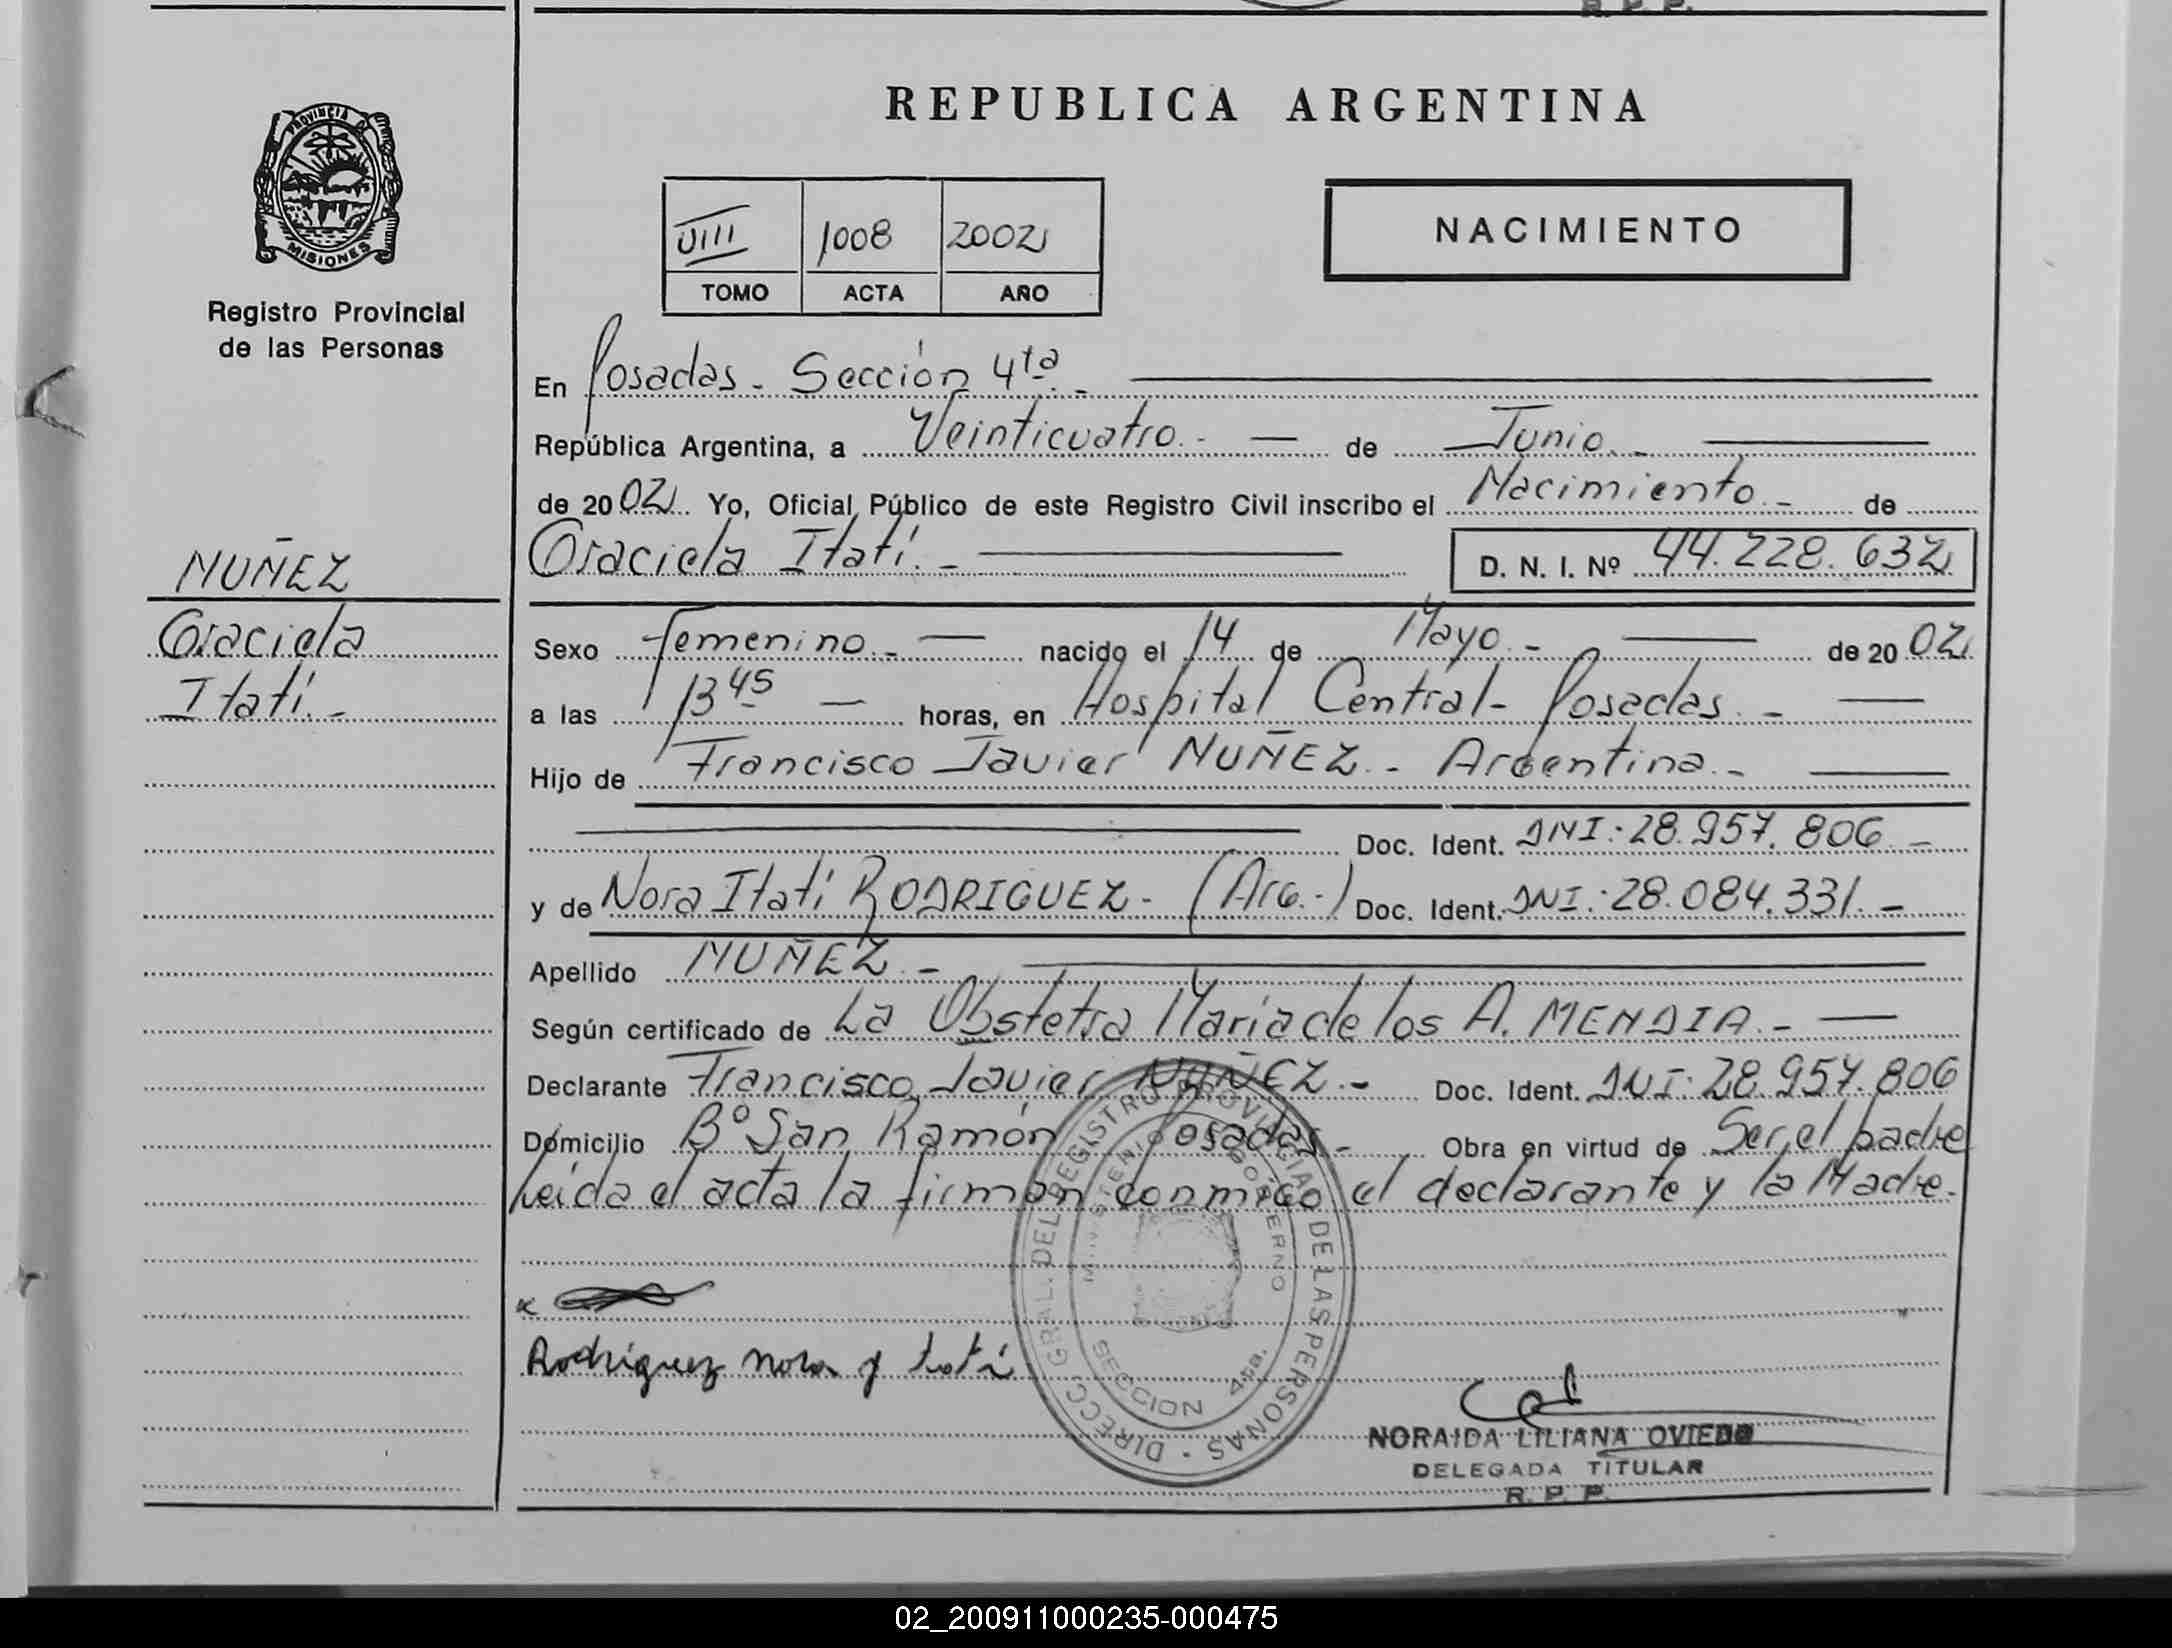 R. P. P.
REPUBLICA ARGENTINA
PROVINCIA DE
MISIONES
Registro Provincial
de las Personas
VIII 1008 2002
TOMO ACTA AÑO
NACIMIENTO
En Posadas - Sección 4ta. -
República Argentina, a Veinticuatro.- de Junio.-
de 2002 Yo, Oficial Público de este Registro Civil inscribo el Nacimiento.- de
Graciela Itatí.- D. N. I. Nº 44.228.632
NUÑEZ
Graciela
Itatí.-
Sexo Femenino.- nacido el 14 de Mayo.- de 2002
a las 13 45 horas, en Hospital Central - Posadas.-
Hijo de Francisco Javier NUÑEZ.- Argentina.-
Doc. Ident. DNI: 28.957.806.-
y de Nora Itatí RODRIGUEZ- (Arg.-) Doc. Ident. DNI: 28.084.331.-
Apellido NUÑEZ.-
Según certificado de La Obstetra Maria de los A. MENDIA.-
Declarante Francisco Javier NUÑEZ.- Doc. Ident. DNI: 28.957.806
Domicilio Bº San Ramón Posadas.- Obra en virtud de Ser el padre
Leida el acta la firman conmigo el declarante y la Madre.
Rodriguez Nora y tatí
DIRECC. GRAL. DEL REGISTRO PROVINCIAL DE LAS PERSONAS
MINISTERIO DE GOBIERNO
SECCION 4ta.
NORAIDA LILIANA OVIEDO
DELEGADA TITULAR
R. P. P.
02_200911000235-000475